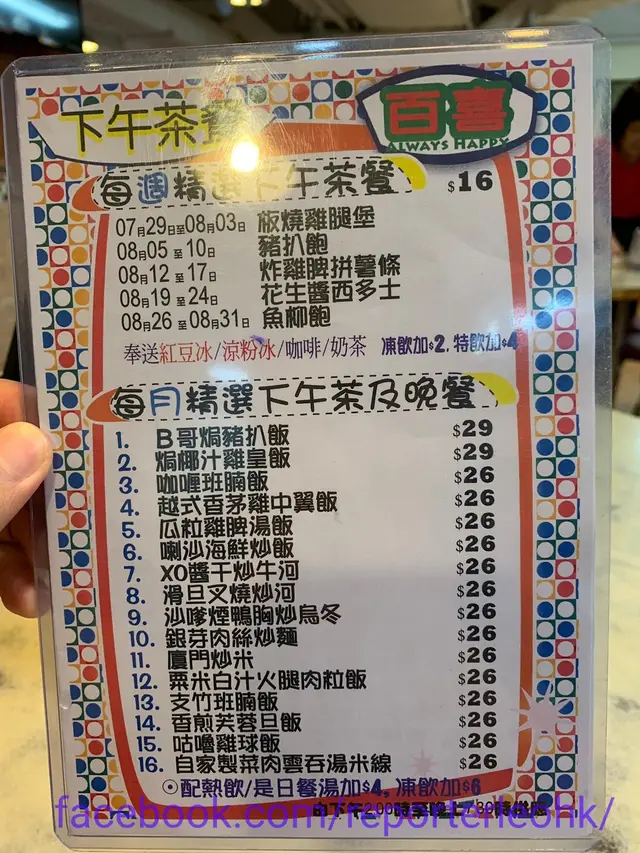 下午茶餐
百喜
ALWAYS HAPPY
每週精選下午茶餐 $16
07月29日至08月03日 板燒雞腿堡
08月05 至 10日 豬扒飽
08月12 至 17日 炸雞脾拼薯條
08月19 至 24日 花生醬西多士
08月26 至08月31日 魚柳飽
奉送紅豆冰/涼粉冰/咖啡/奶茶 凍飲加$2, 特飲加$4
每月精選下午茶及晚餐
1. B哥焗豬扒飯 $29
2. 焗椰汁雞皇飯 $29
3. 咖喱班腩飯 $26
4. 越式香茅雞中翼飯 $26
5. 瓜粒雞脾湯飯 $26
6. 喇沙海鮮炒飯 $26
7. XO醬干炒牛河 $26
8. 滑旦叉燒炒河 $26
9. 沙嗲煙鴨胸炒烏冬 $26
10. 銀芽肉絲炒麵 $26
11. 廈門炒米 $26
12. 粟米白汁火腿肉粒飯 $26
13. 支竹班腩飯 $26
14. 香煎芙蓉旦飯 $26
15. 咕嚕雞球飯 $26
16. 自家製菜肉雲吞湯米線 $26
⊙配熱飲/是日餐湯加$4, 凍飲加$6
由下午2:00時至晚上7:30時供應
facebook.com/reporterleohk/